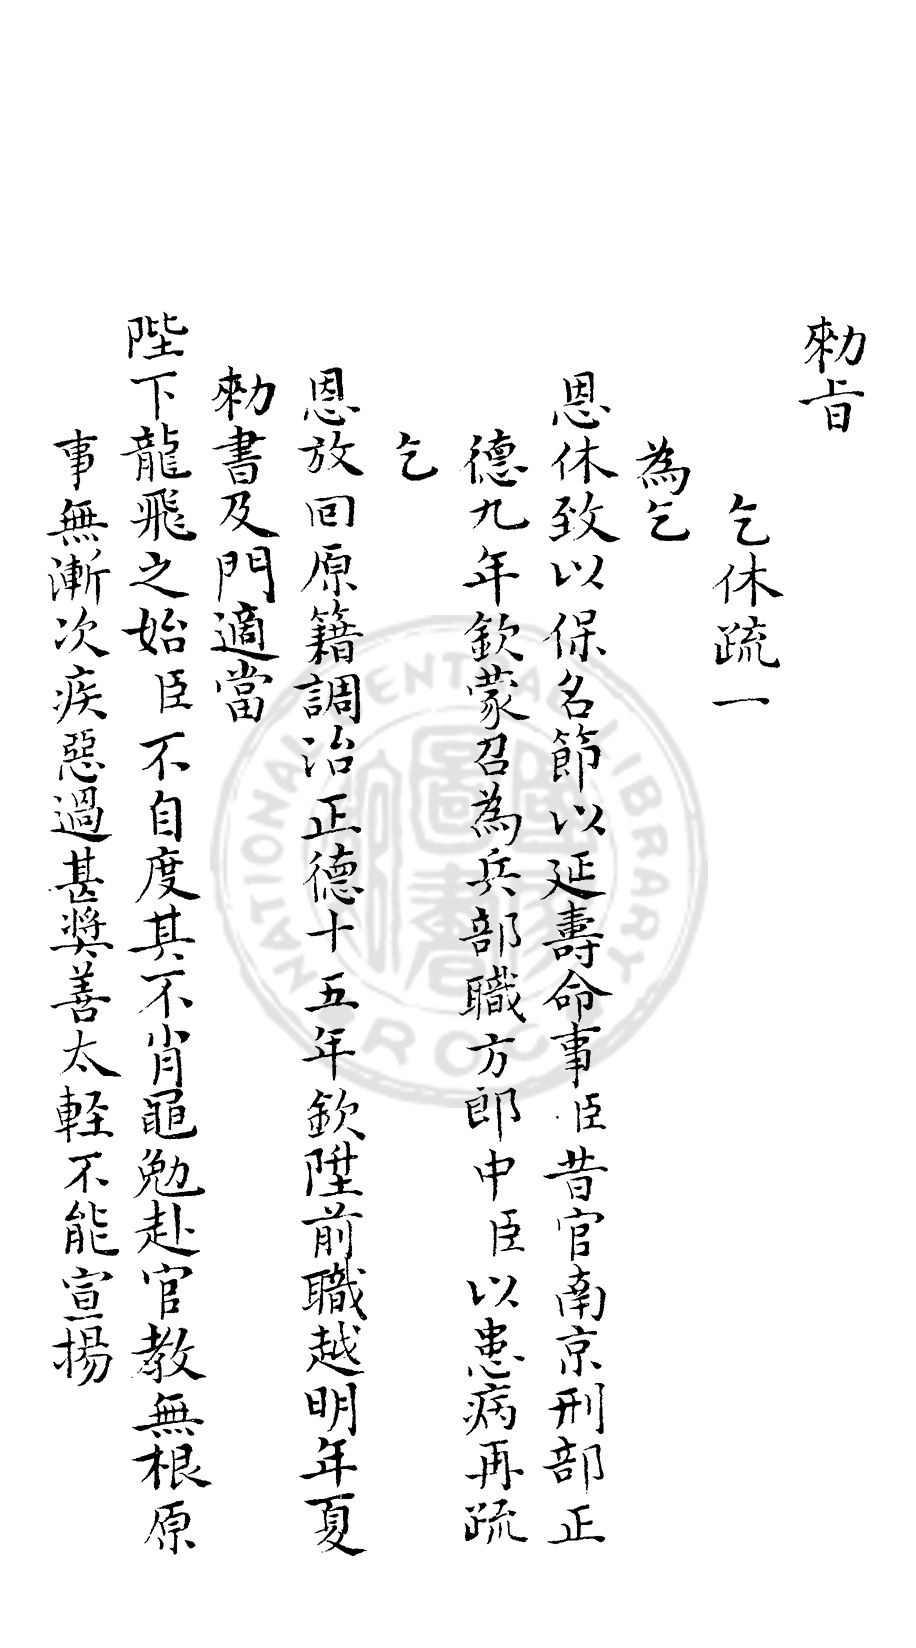 勑旨
乞休疏一
為乞
恩休致以保名節以延壽命事臣昔官南京刑部正
德九年欽蒙召為兵部職方郎中臣以患病再疏
乞
恩放回原籍調治正德十五年欽陞前職越明年夏
勑書及門適當
陛下龍飛之始臣不自度其不肖黽勉赴官教無根原
事無漸次疾惡過甚奬善太輕不能宣揚
NATIONAL CENTRAL LIBRARY
R.O.C.